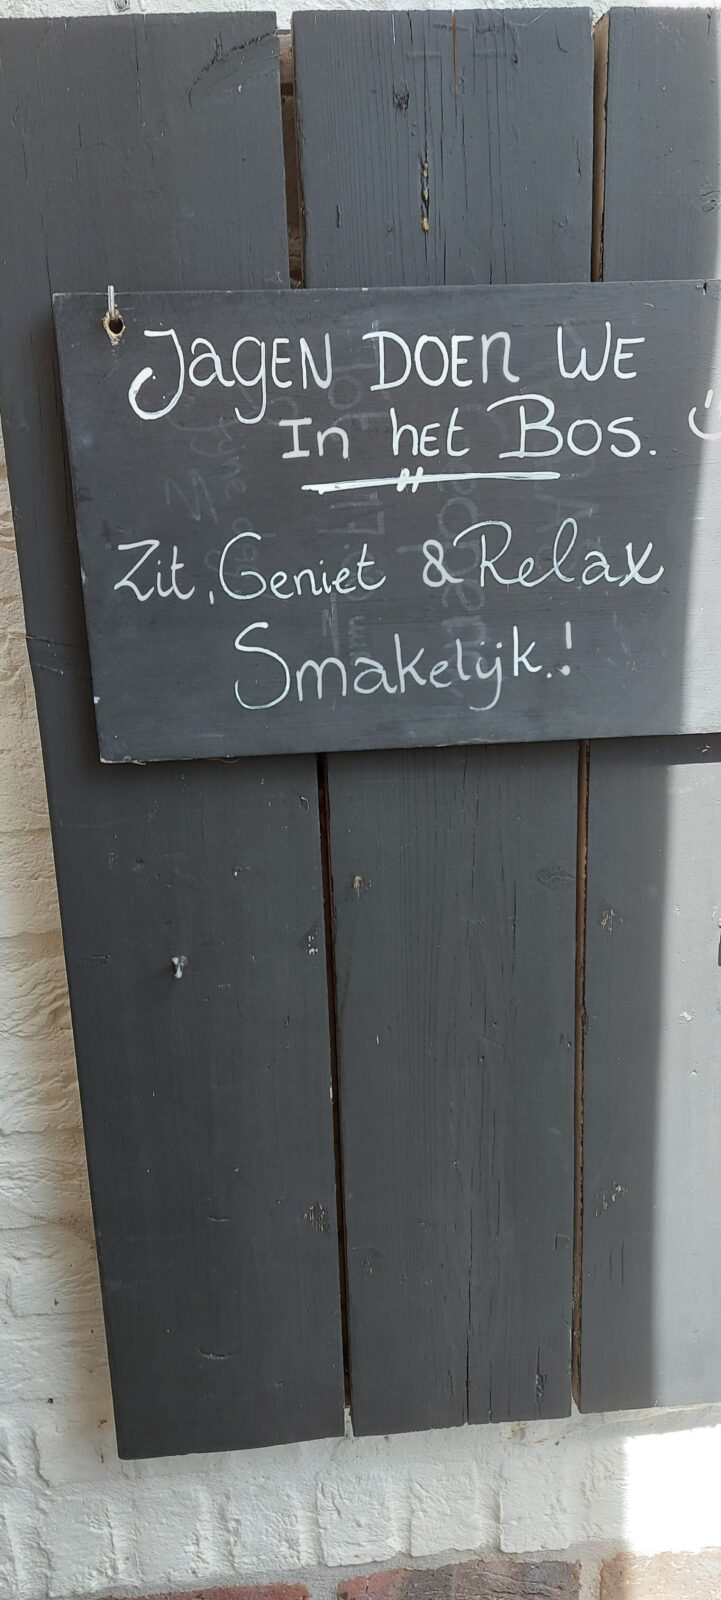 Jagen doen we
in het Bos.
Zit, Geniet & Relax
Smakelijk.!